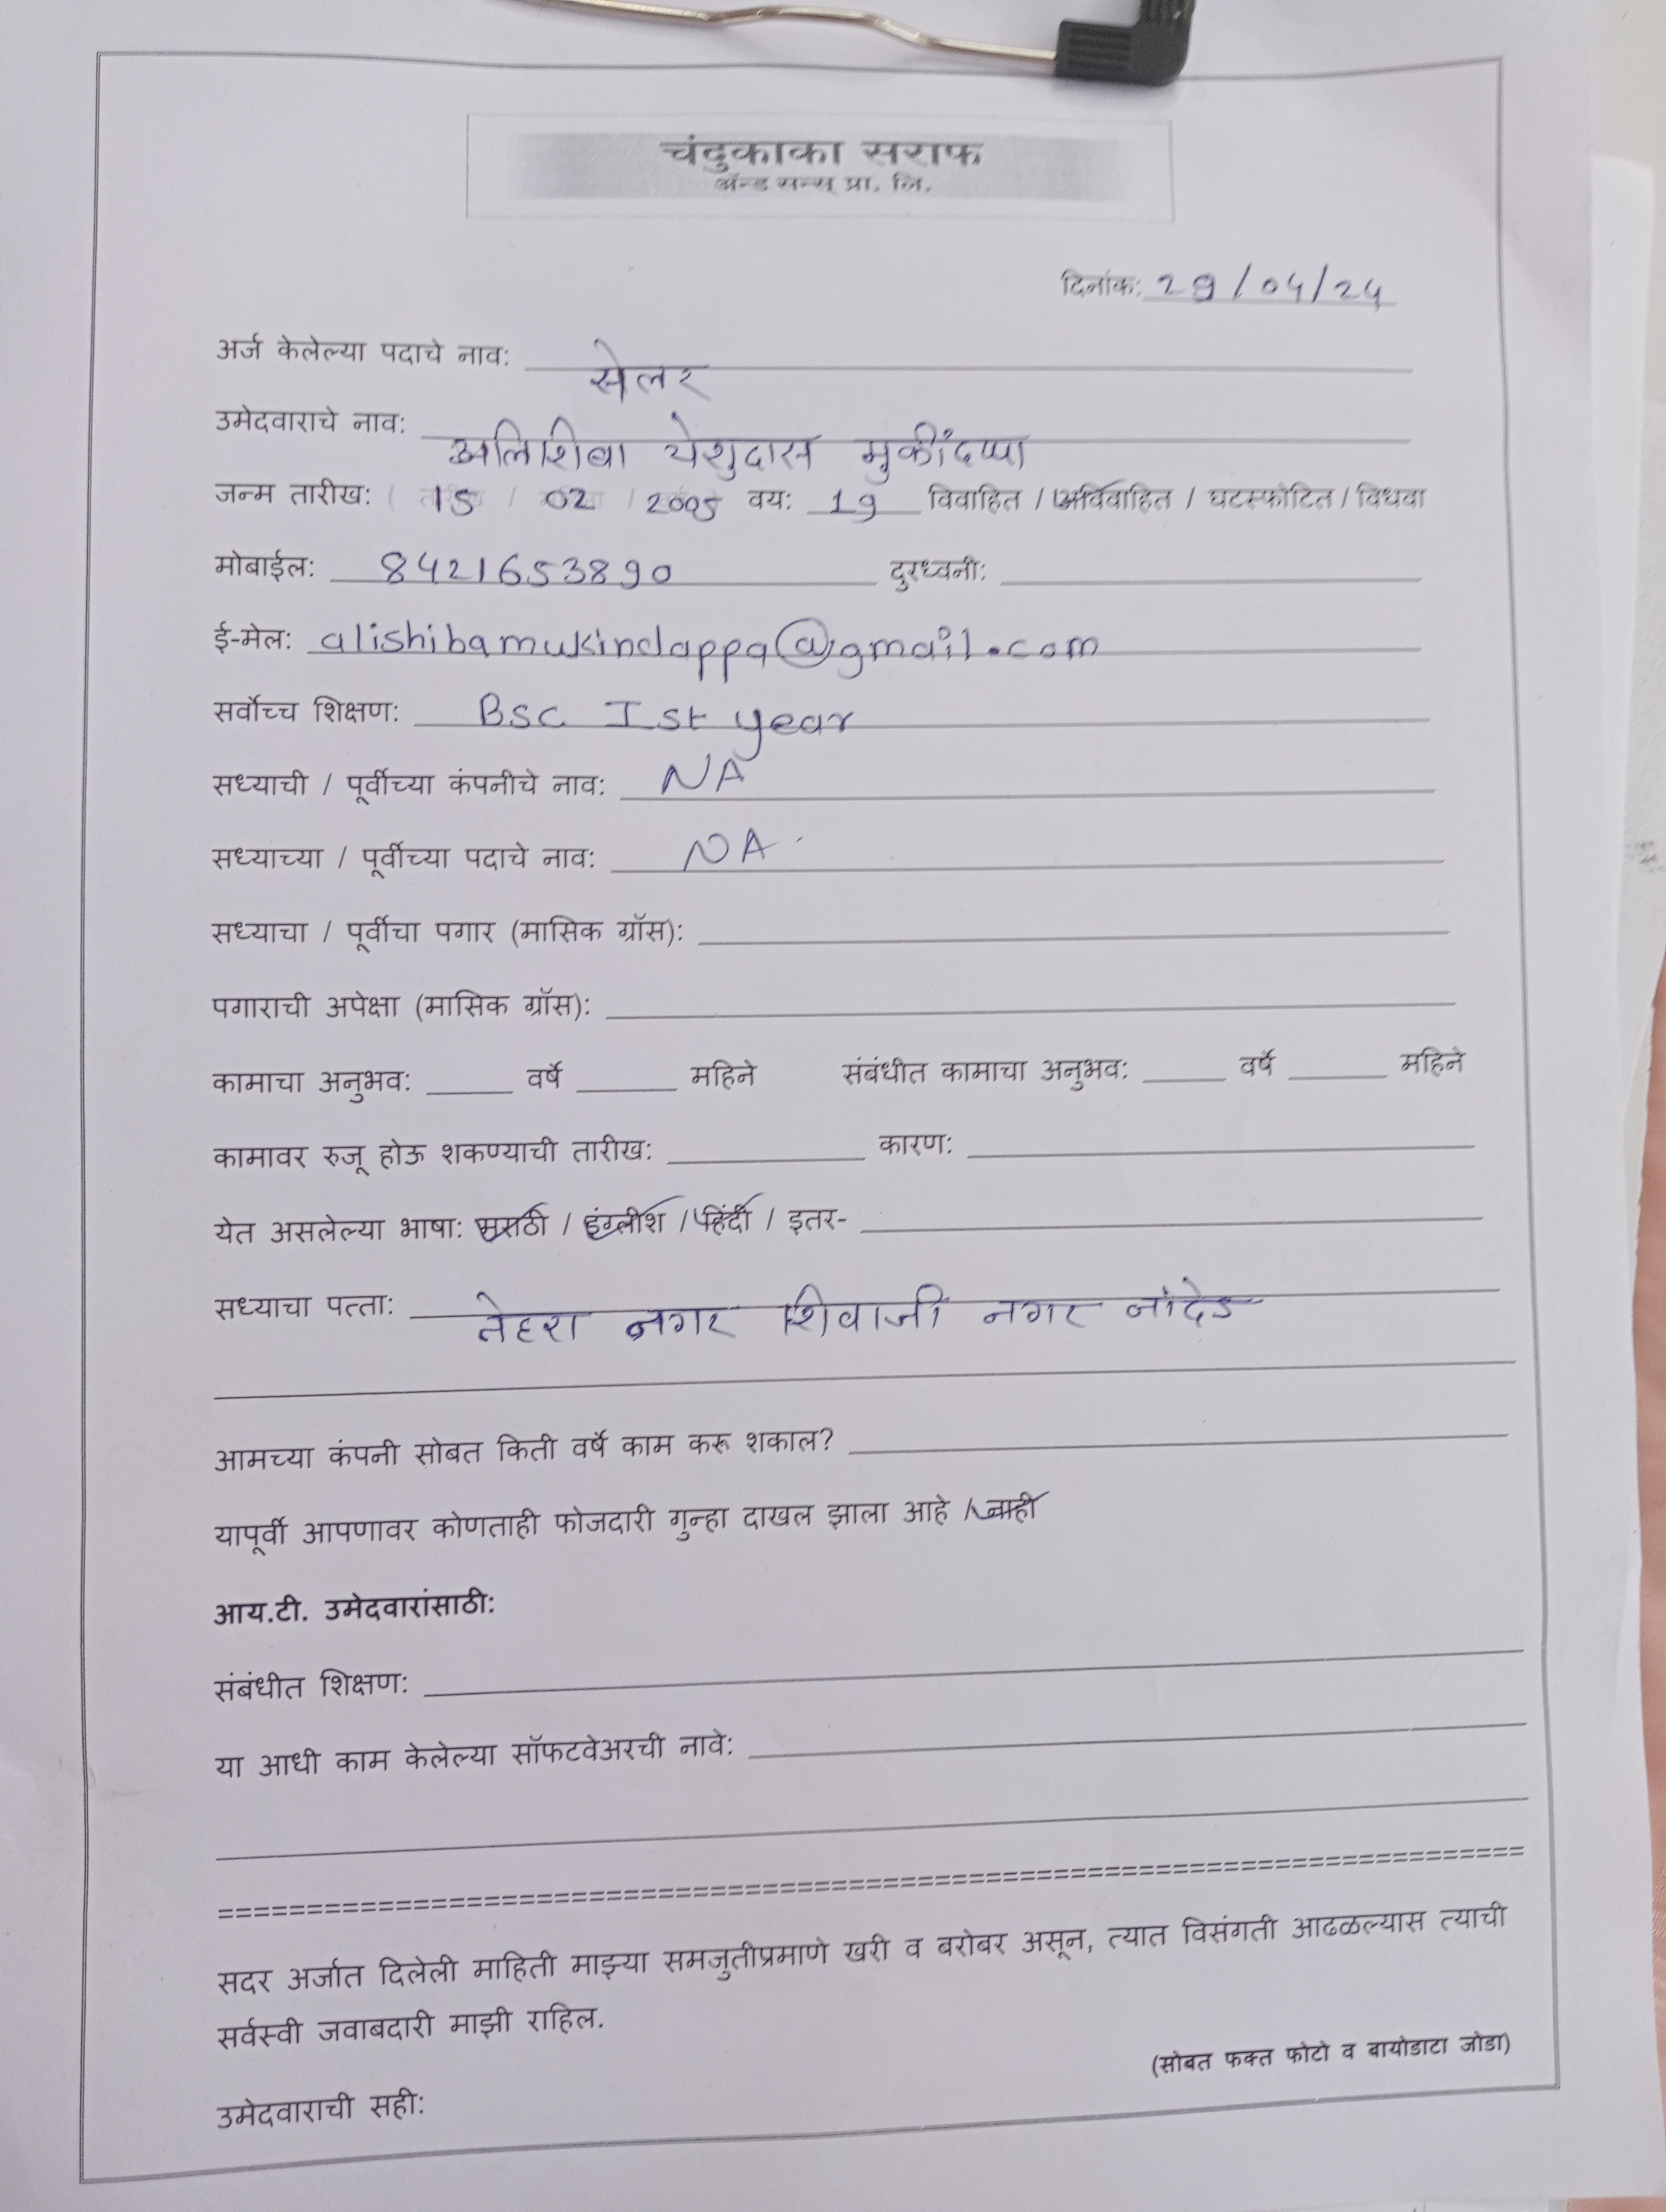 चंदुकाका सराफ
ॲन्ड सन्स् प्रा. लि.
दिनांक: 29/04/24
अर्ज केलेल्या पदाचे नाव: सेलर
उमेदवाराचे नाव: अलिशिबा येशुदास मुकींदप्पा
जन्म तारीख: ( 15 / 02 / 2005 वय: 19 विवाहित / अविवाहित / घटस्फोटित / विधवा
मोबाईल: 8421653890 दुरध्वनी:
ई-मेल: alishibamukindappa@gmail.com
सर्वोच्च शिक्षण: BSC Ist year
सध्याची / पूर्वीच्या कंपनीचे नाव: NA
सध्याच्या / पूर्वीच्या पदाचे नाव: NA
सध्याचा / पूर्वीचा पगार (मासिक ग्रॉस):
पगाराची अपेक्षा (मासिक ग्रॉस):
कामाचा अनुभव: ____ वर्षे ____ महिने संबंधीत कामाचा अनुभव: ____ वर्षे ____ महिने
कामावर रुजू होऊ शकण्याची तारीख: ____ कारण:
येत असलेल्या भाषा: मराठी / इंग्लीश / हिंदी / इतर-
सध्याचा पत्ता: नेहरा नगर शिवाजी नगर नांदेड
आमच्या कंपनी सोबत किती वर्षे काम करू शकाल?
यापूर्वी आपणावर कोणताही फोजदारी गुन्हा दाखल झाला आहे / नाही
आय.टी. उमेदवारांसाठी:
संबंधीत शिक्षण:
या आधी काम केलेल्या सॉफटवेअरची नावे:
सदर अर्जात दिलेली माहिती माझ्या समजुतीप्रमाणे खरी व बरोबर असून, त्यात विसंगती आढळल्यास त्याची
सर्वस्वी जवाबदारी माझी राहिल.
(सोबत फक्त फोटो व बायोडाटा जोडा)
उमेदवाराची सही: